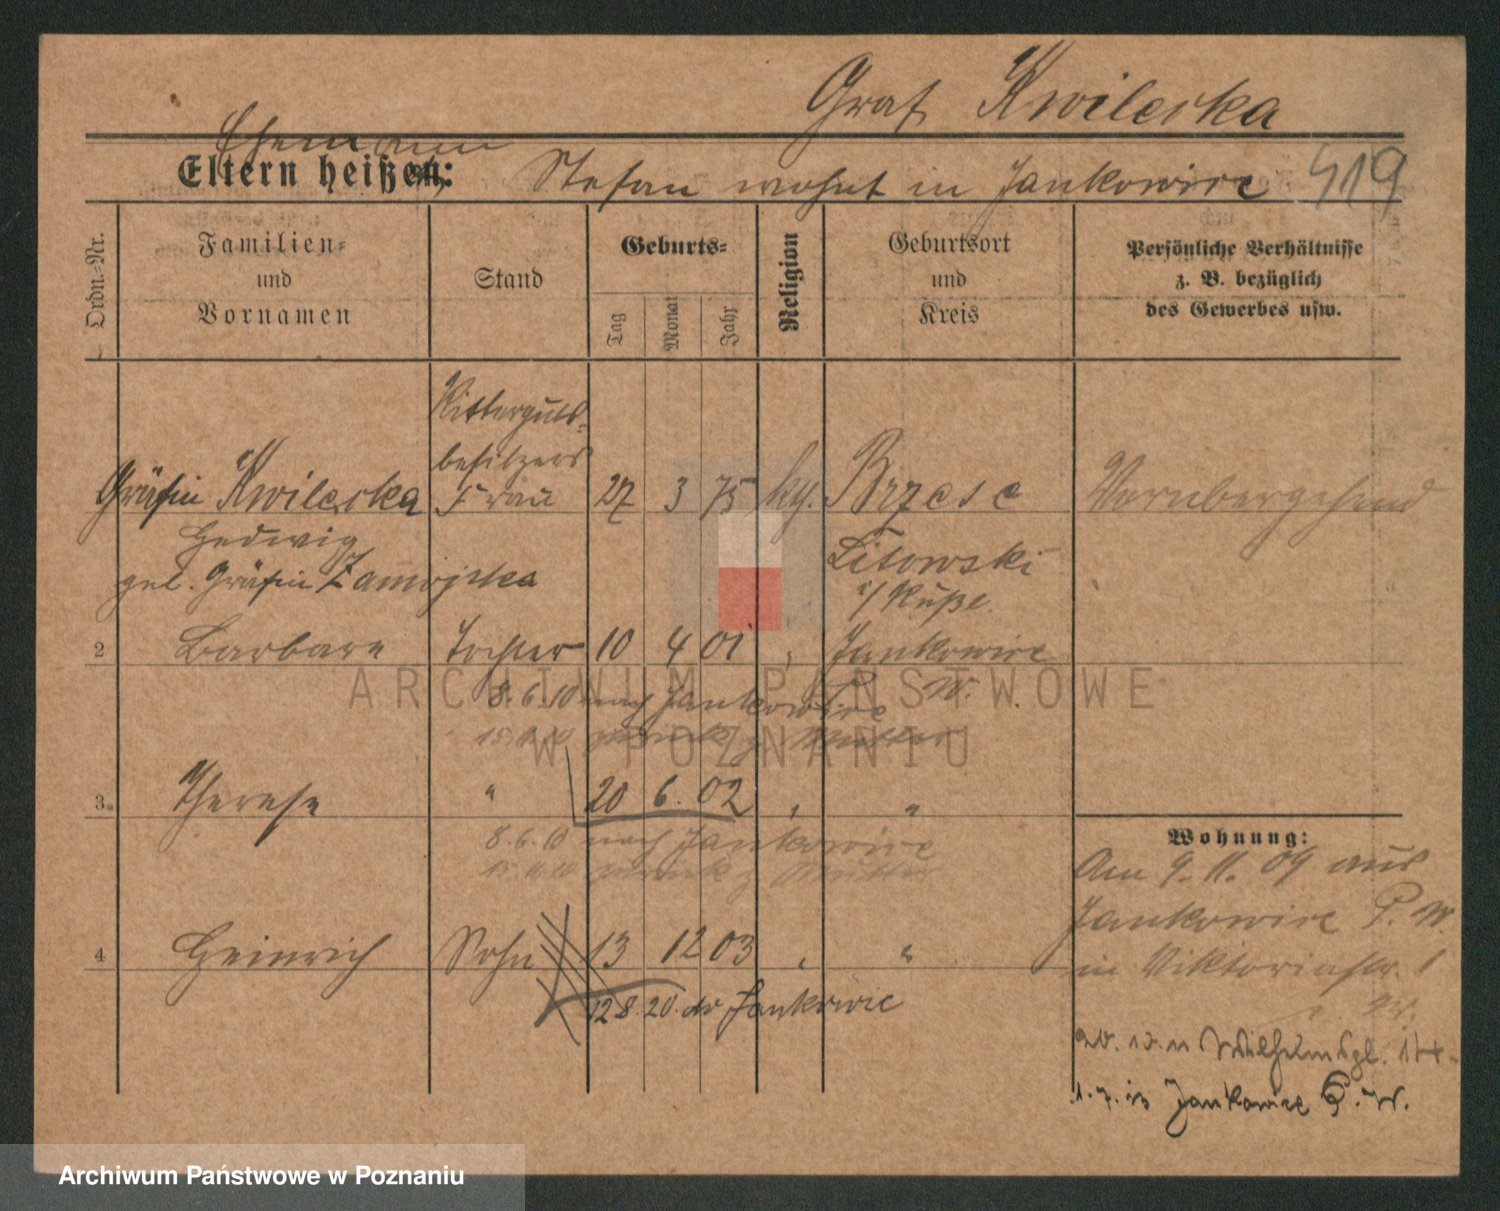 Graf Kwilecka
Ehemann
Eltern heißen: Stefan wohnt in Jankowice 419
Ordn.-Nr.
Familien-
und
Vornamen
Stand
Geburts-
Tag
Monat
Jahr
Religion
Geburtsort
und
Kreis
Persönliche Verhältnisse
z. B. bezüglich
des Gewerbes usw.
Ritterguts-
besitzers
Gräfin Kwilecka Frau 27 3 75 Brzesc
Hedwig Litowski
geb. Gräfin Zamojska i/ Rußl.
2 Barbara Tochter 10 4 01 " Jankowice
8.6.10 nach Jankowice P. W.
zurück z Mutter
3. Therese " 20 6. 02 " "
8.6.10 nach Jankowice
zurück z Mutter
4 Heinrich Sohn 13 12 03 " "
12 8. 20. Jankowic
Wohnung:
Am 9. 11. 09 aus
Jankowice P. W.
in Viktoriastr. 1
Wilhelmspl. 14.
Jankowice P. W.
ARCHIWUM PAŃSTWOWE
W POZNANIU
Archiwum Państwowe w Poznaniu